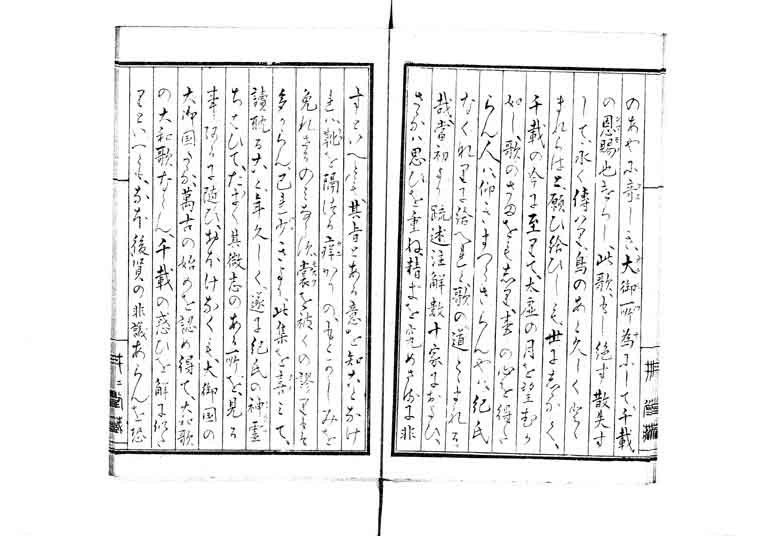 のあやに奇しき、大御所為にして千載
の恩賜也ならし、此歌もし絶す散失す
して、永く傳はり、鳥のあと久しくとゝ
まれらはと、願ひ給ひしも、世にしるく、
千載の今に至りて、大虚の月を望むか
如し、歌のさまをもしり、事の心を得た
らん人ハ、仰きまつらさらんや、紀氏
給へれし歌の道とゝまれる
哉、當初より疏述注解数十家におよひ、
思ひを重ね精力を究めさるに非
すといへとも、其旨とある意を知ことかけ
れハ、靴を隔つる痒かりのもとかしみを
免れさるのミならす、裳を被くの謬りも
多からん、己れ少きより、此集を喜ミて、
讀耽ること年久しく、遂に紀氏の神霊
ちさひて、其微志のある所を、見る
事 に随ひ、おほけなくも、大御国の
大御国たる萬古の始めを認め得て、大和歌
の大和歌ならん、千載の惑ひを解に似た
りといへとも、なほ後賢の非議あらんを恐